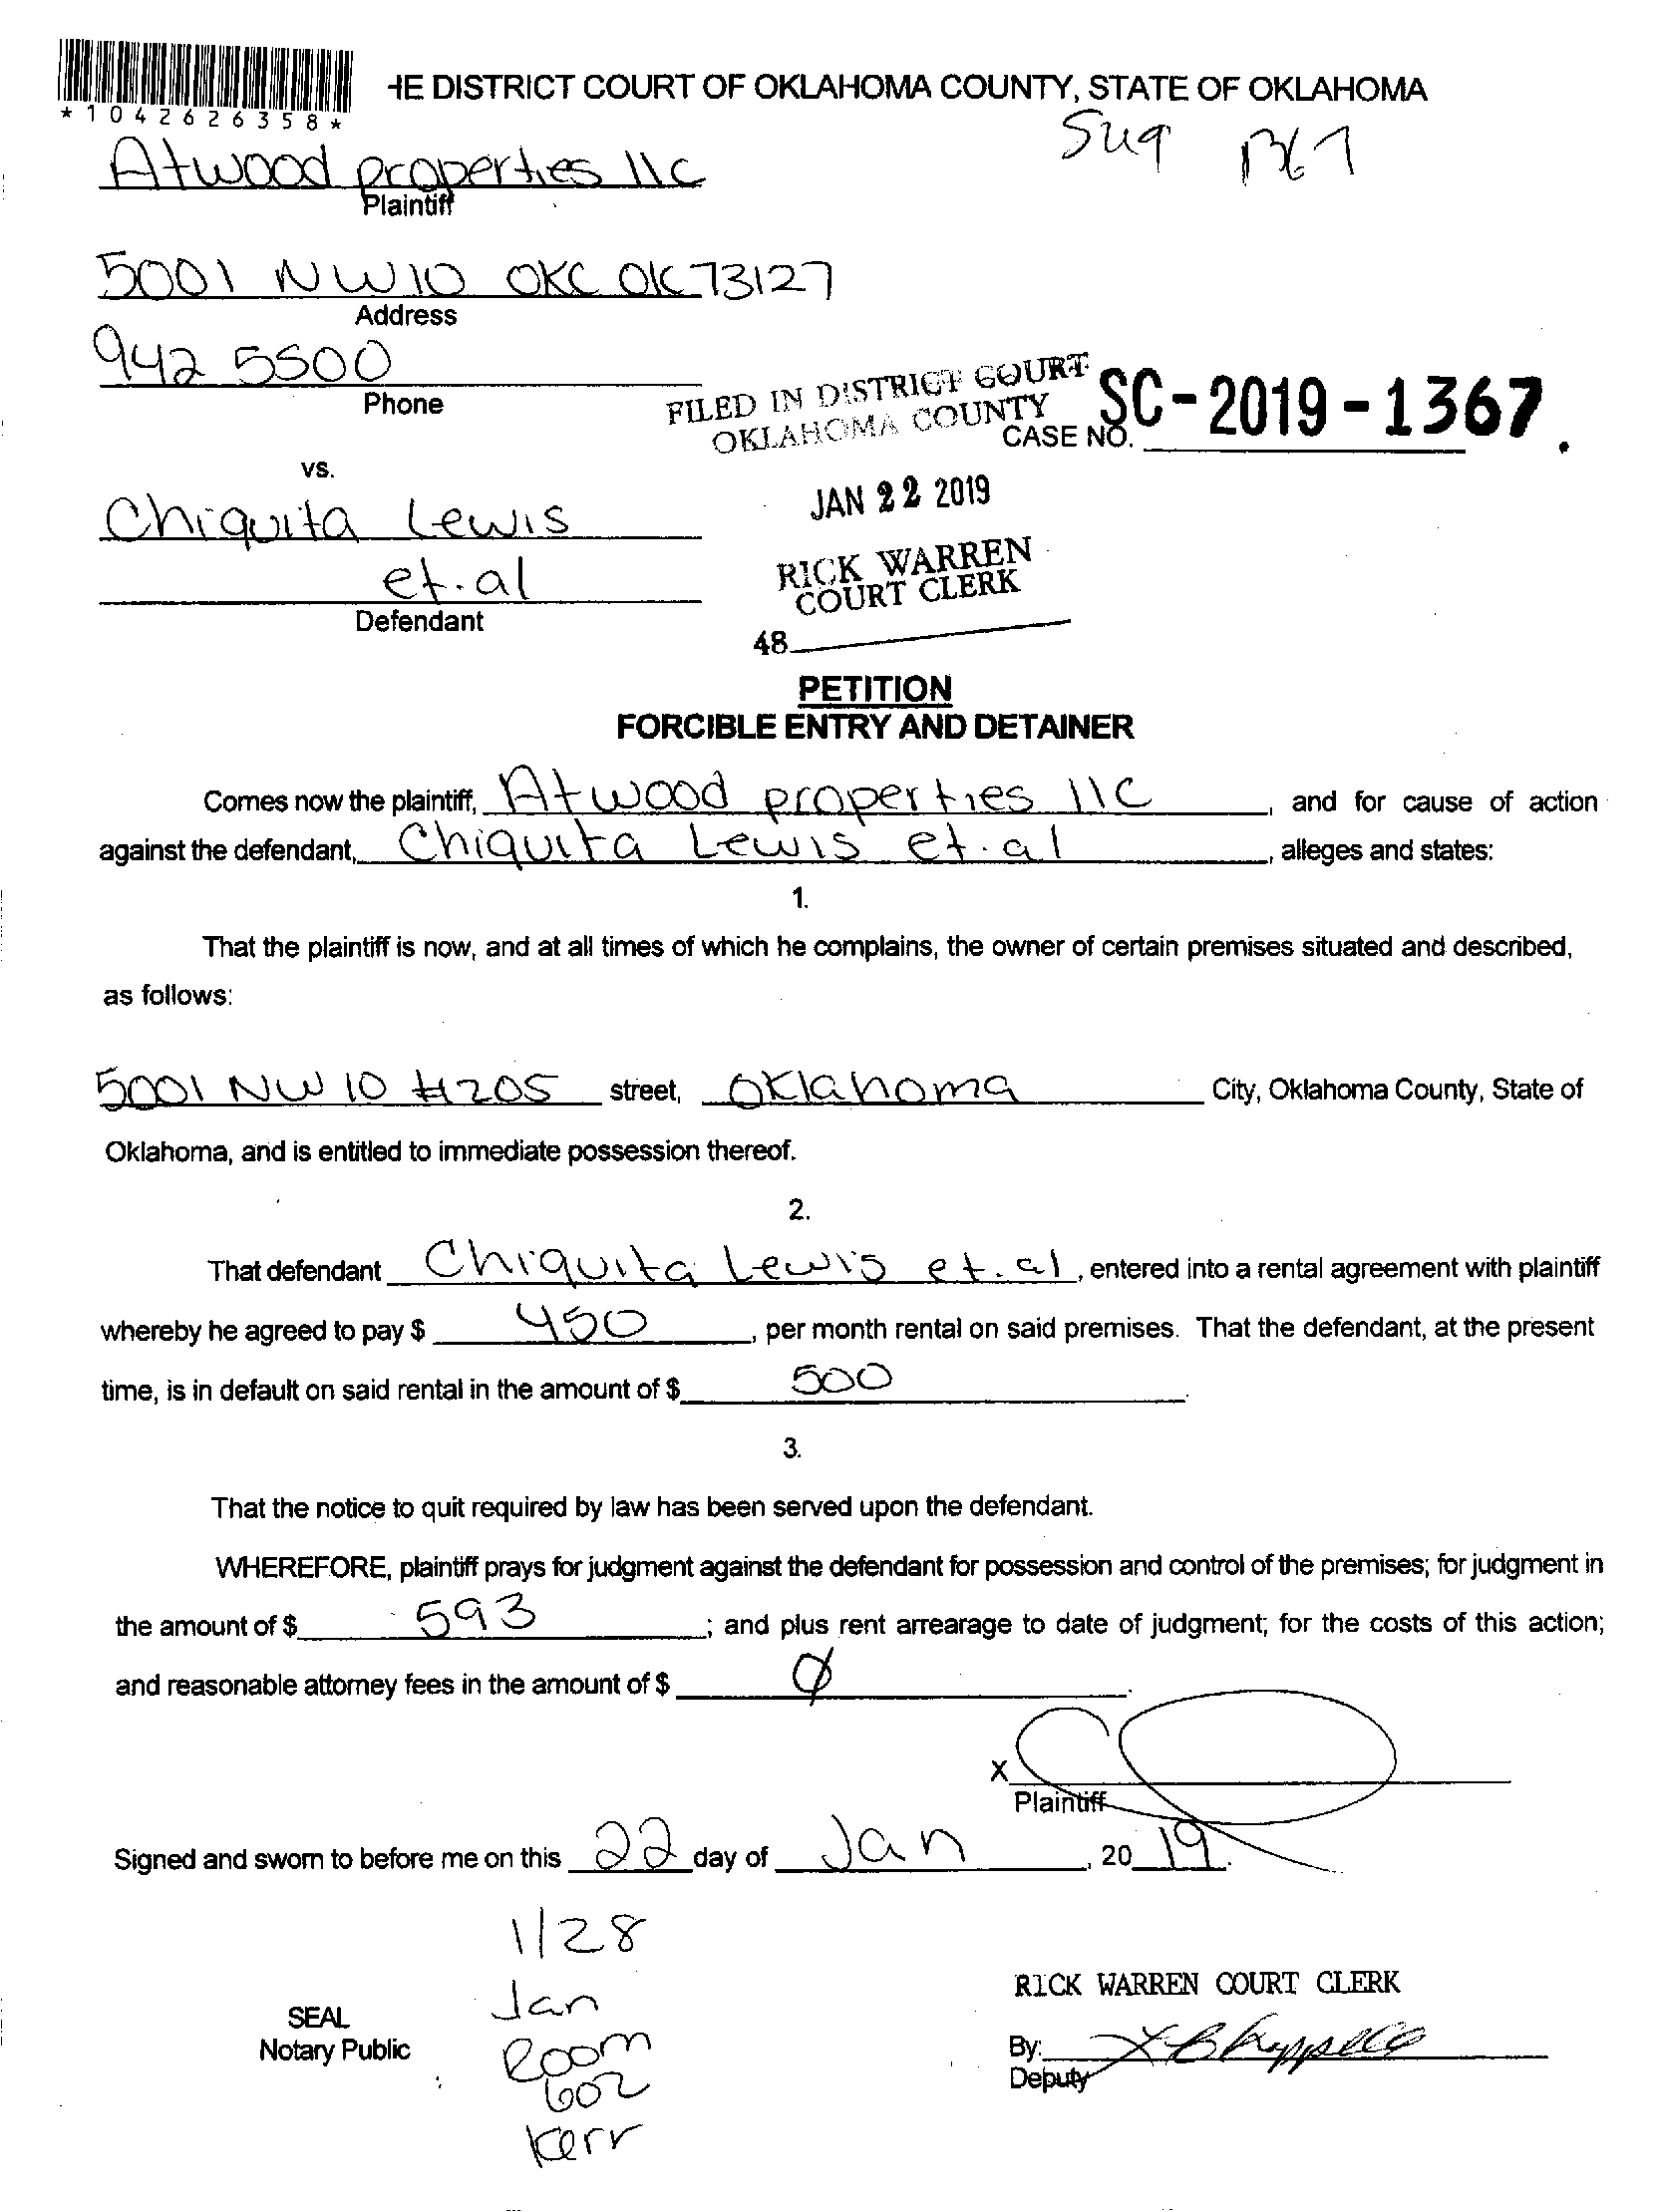 *1042626358*
HE DISTRICT COURT OF OKLAHOMA COUNTY, STATE OF OKLAHOMA
1367
Atwood properties llc
Plaintiff
5001 NW 10 OKC OK 73127
Address
942 5500
Phone
FILED IN DISTRICT COURT
OKLAHOMA COUNTY
CASE NO. SC-2019-1367.
vs.
JAN 22 2019
Chiquita Lewis
et.al
Defendant
RICK WARREN
COURT CLERK
48
PETITION
FORCIBLE ENTRY AND DETAINER
Comes now the plaintiff, Atwood properties llc, and for cause of action
against the defendant, Chiquita Lewis et.al, alleges and states:
1.
That the plaintiff is now, and at all times of which he complains, the owner of certain premises situated and described,
as follows:
5001 NW 10 #205 street, Oklahoma City, Oklahoma County, State of
Oklahoma, and is entitled to immediate possession thereof.
2.
That defendant Chiquita Lewis et.al, entered into a rental agreement with plaintiff
whereby he agreed to pay $ 450, per month rental on said premises. That the defendant, at the present
time, is in default on said rental in the amount of $ 500.
3.
That the notice to quit required by law has been served upon the defendant.
WHEREFORE, plaintiff prays for judgment against the defendant for possession and control of the premises; for judgment in
the amount of $ 593; and plus rent arrearage to date of judgment; for the costs of this action;
and reasonable attorney fees in the amount of $ Ø.
X
Plaintiff
Signed and sworn to before me on this 22 day of Jan, 20 19.
1/28
Jan
Room
602
Kerr
SEAL
Notary Public
RICK WARREN COURT CLERK
By:
Deputy